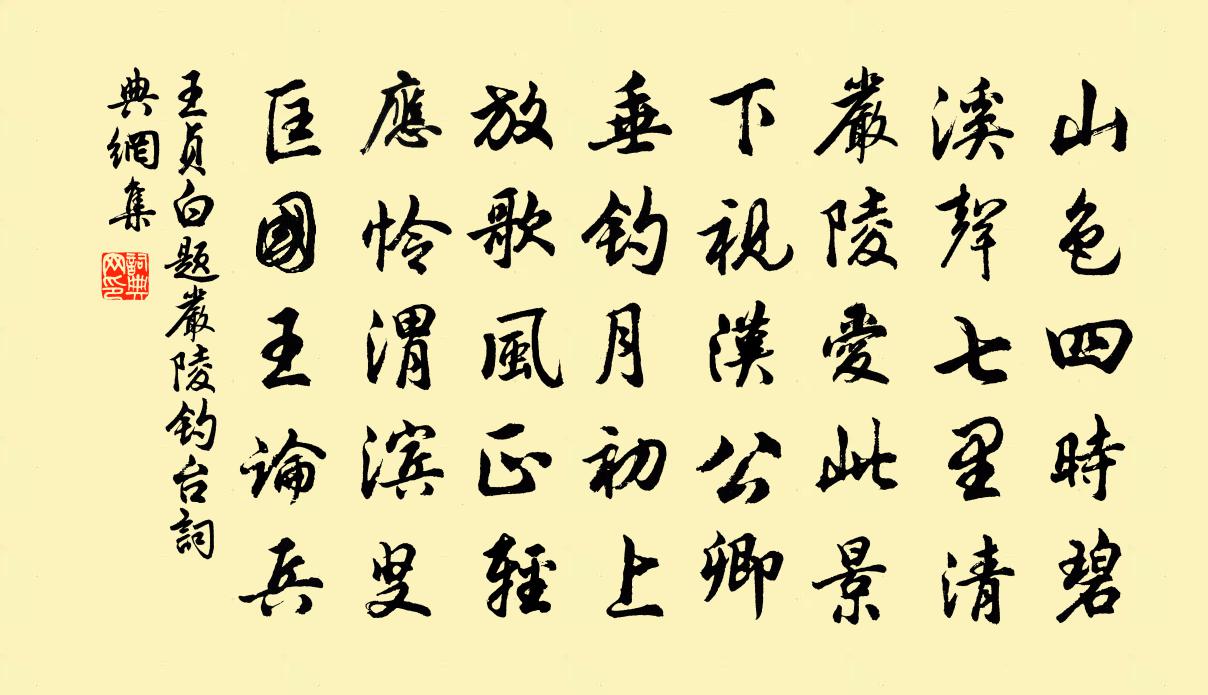 山色四時碧
溪聲七里清
嚴陵愛此景
下視漢公卿
垂釣月初上
放歌風正輕
應怜渭滨叟
匡國王論兵
王貞白题嚴陵钓台詞
典網集
詞典
网印